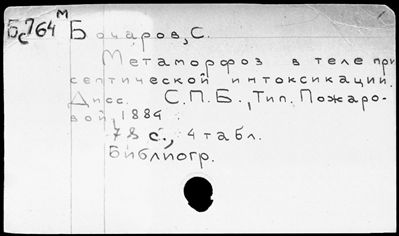 Бс764м Бочаров, С.
Метаморфоз в теле при
септической интоксикации.
Дисс. С.П.Б., Тип. Пожаро-
вой, 1884.
78 с., 4 табл.
Библиогр.